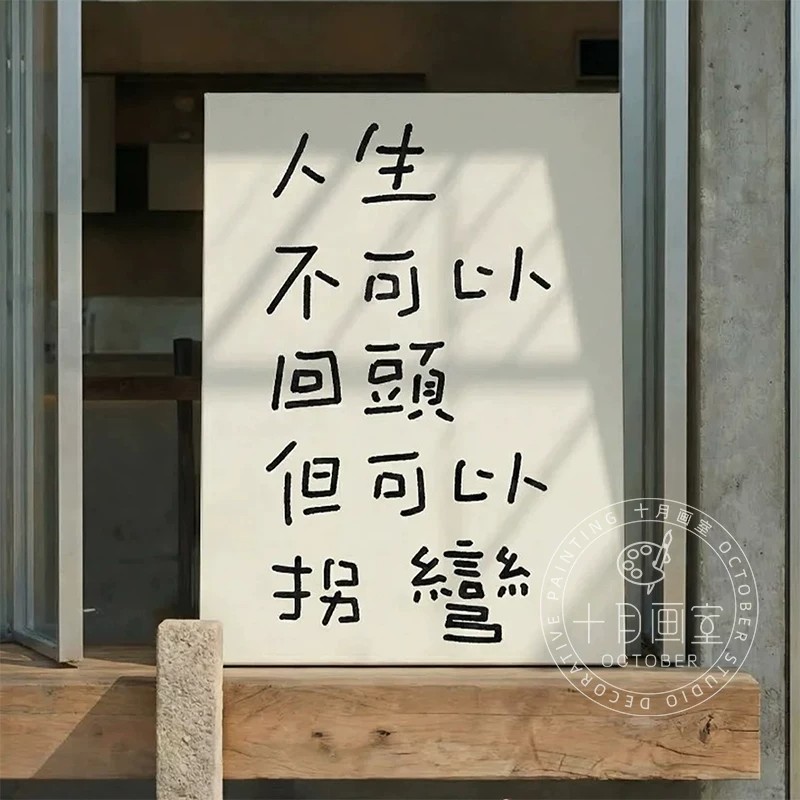 人生
不可以
回頭
但可以
拐彎
十月画室 OCTOBER STUDIO DECORATIVE PAINTING
十月画室
OCTOBER